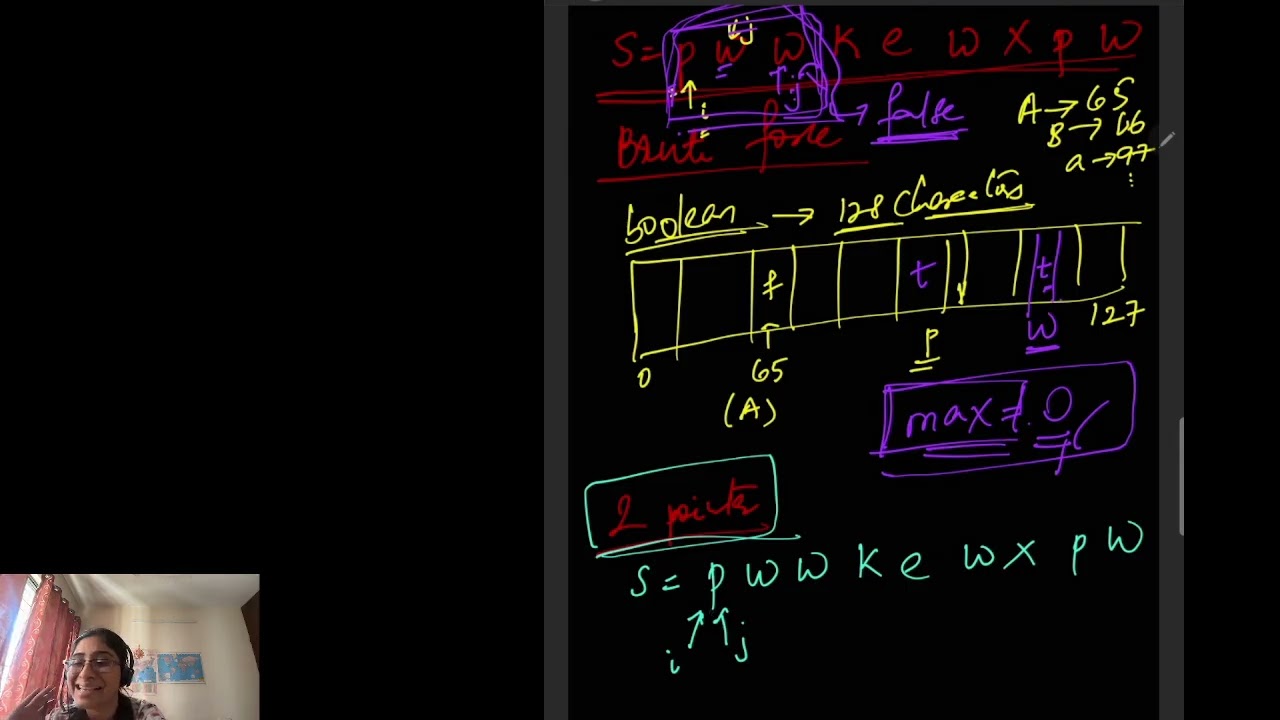 S = p w w k e w x p w
j
i j
Brute force → false
A → 65
B → 66
a → 97
boolean → 128 characters
f t t
0 65 p w 127
(A)
max = 0
2 pointer
S = p w w k e w x p w
i j